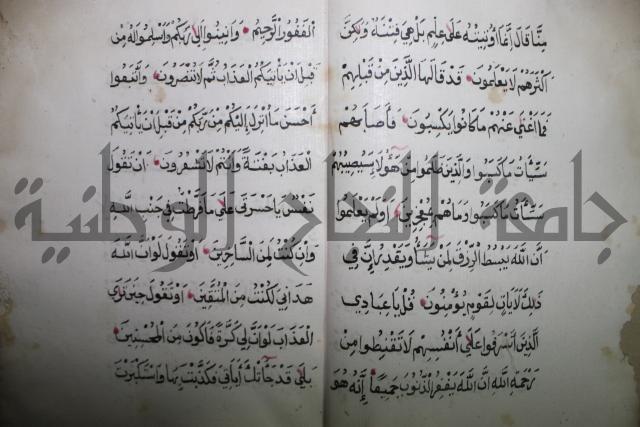 منا قال إنما أوتيته على علم بل هي فتنة ولكن
أكثرهم لا يعلمون قد قالها الذين من قبلهم
فما أغنى عنهم ما كانوا يكسبون فأصابهم
سيأت ما كسبوا والذين ظلموا من هؤلاء سيصيبهم
سيأت ما كسبوا وما هم بمعجزين أولم يعلموا
أن الله يبسط الرزق لمن يشاء ويقدر إن في
ذلك لآيات لقوم يؤمنون قل يا عبادي
الذين أسرفوا على أنفسهم لا تقنطوا من
رحمة الله إن الله يغفر الذنوب جميعا إنه هو
الغفور الرحيم وأنيبوا إلى ربكم وأسلموا له من
قبل أن يأتيكم العذاب ثم لا تنصرون واتبعوا
أحسن ما أنزل إليكم من ربكم من قبل أن يأتيكم
العذاب بغتة وأنتم لا تشعرون أن تقول
نفس يا حسرتى على ما فرطت في جنب الله
وإن كنت لمن الساخرين أو تقول لو أن الله
هداني لكنت من المتقين أو تقول حين ترى
العذاب لو أن لي كرة فأكون من المحسنين
بلى قد جاءتك آياتي فكذبت بها واستكبرت
جامعة النجاح الوطنية